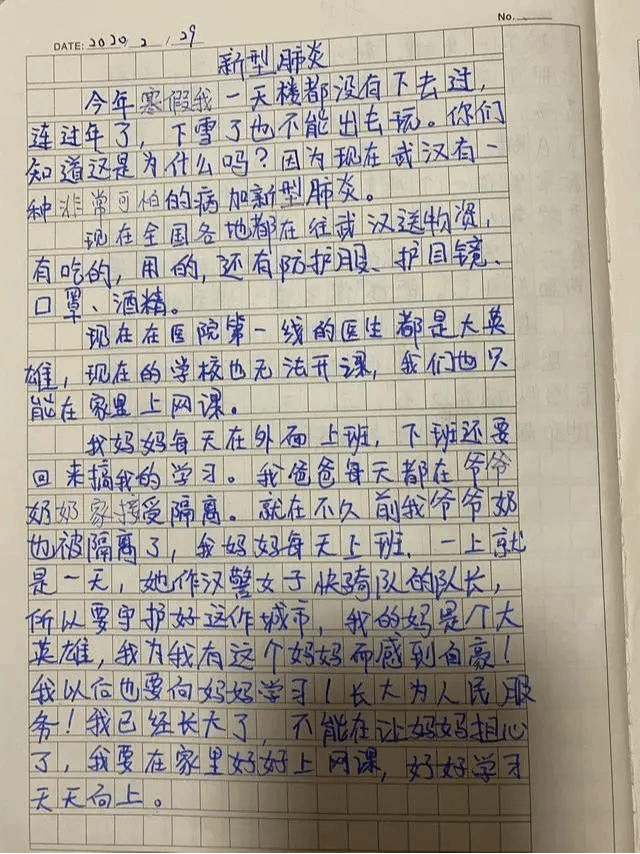 No.
DATE: 2020 2 / 29
新型肺炎
今年寒假我一天楼都没有下去过,
连过年了,下雪了也不能出去玩。你们
知道还是为什么吗?因为现在武汉有一
种非常可怕的病加新型肺炎。
现在全国各地都在往武汉送物资,
有吃的,用的,还有防护服、护目镜、
口罩、酒精。
现在在医院第一线的医生都是大英
雄,现在的学校也无法开课,我们也只
能在家里上网课。
我妈妈每天在外面上班,下班还要
回来搞我的学习。我爸爸每天都在爷爷
奶奶家接受隔离。就在不久前我爷爷奶
也被隔离了,我妈妈每天上班,一上就
是一天,她作汉警女子快骑队的队长,
所以要守护好这作城市,我的妈是个大
英雄,我为我有这个妈妈而感到自豪!
我以后也要向妈妈学习!长大为人民服
务!我已经长大了,不能在让妈妈担心
了,我要在家里好好上网课,好好学习
天天向上。